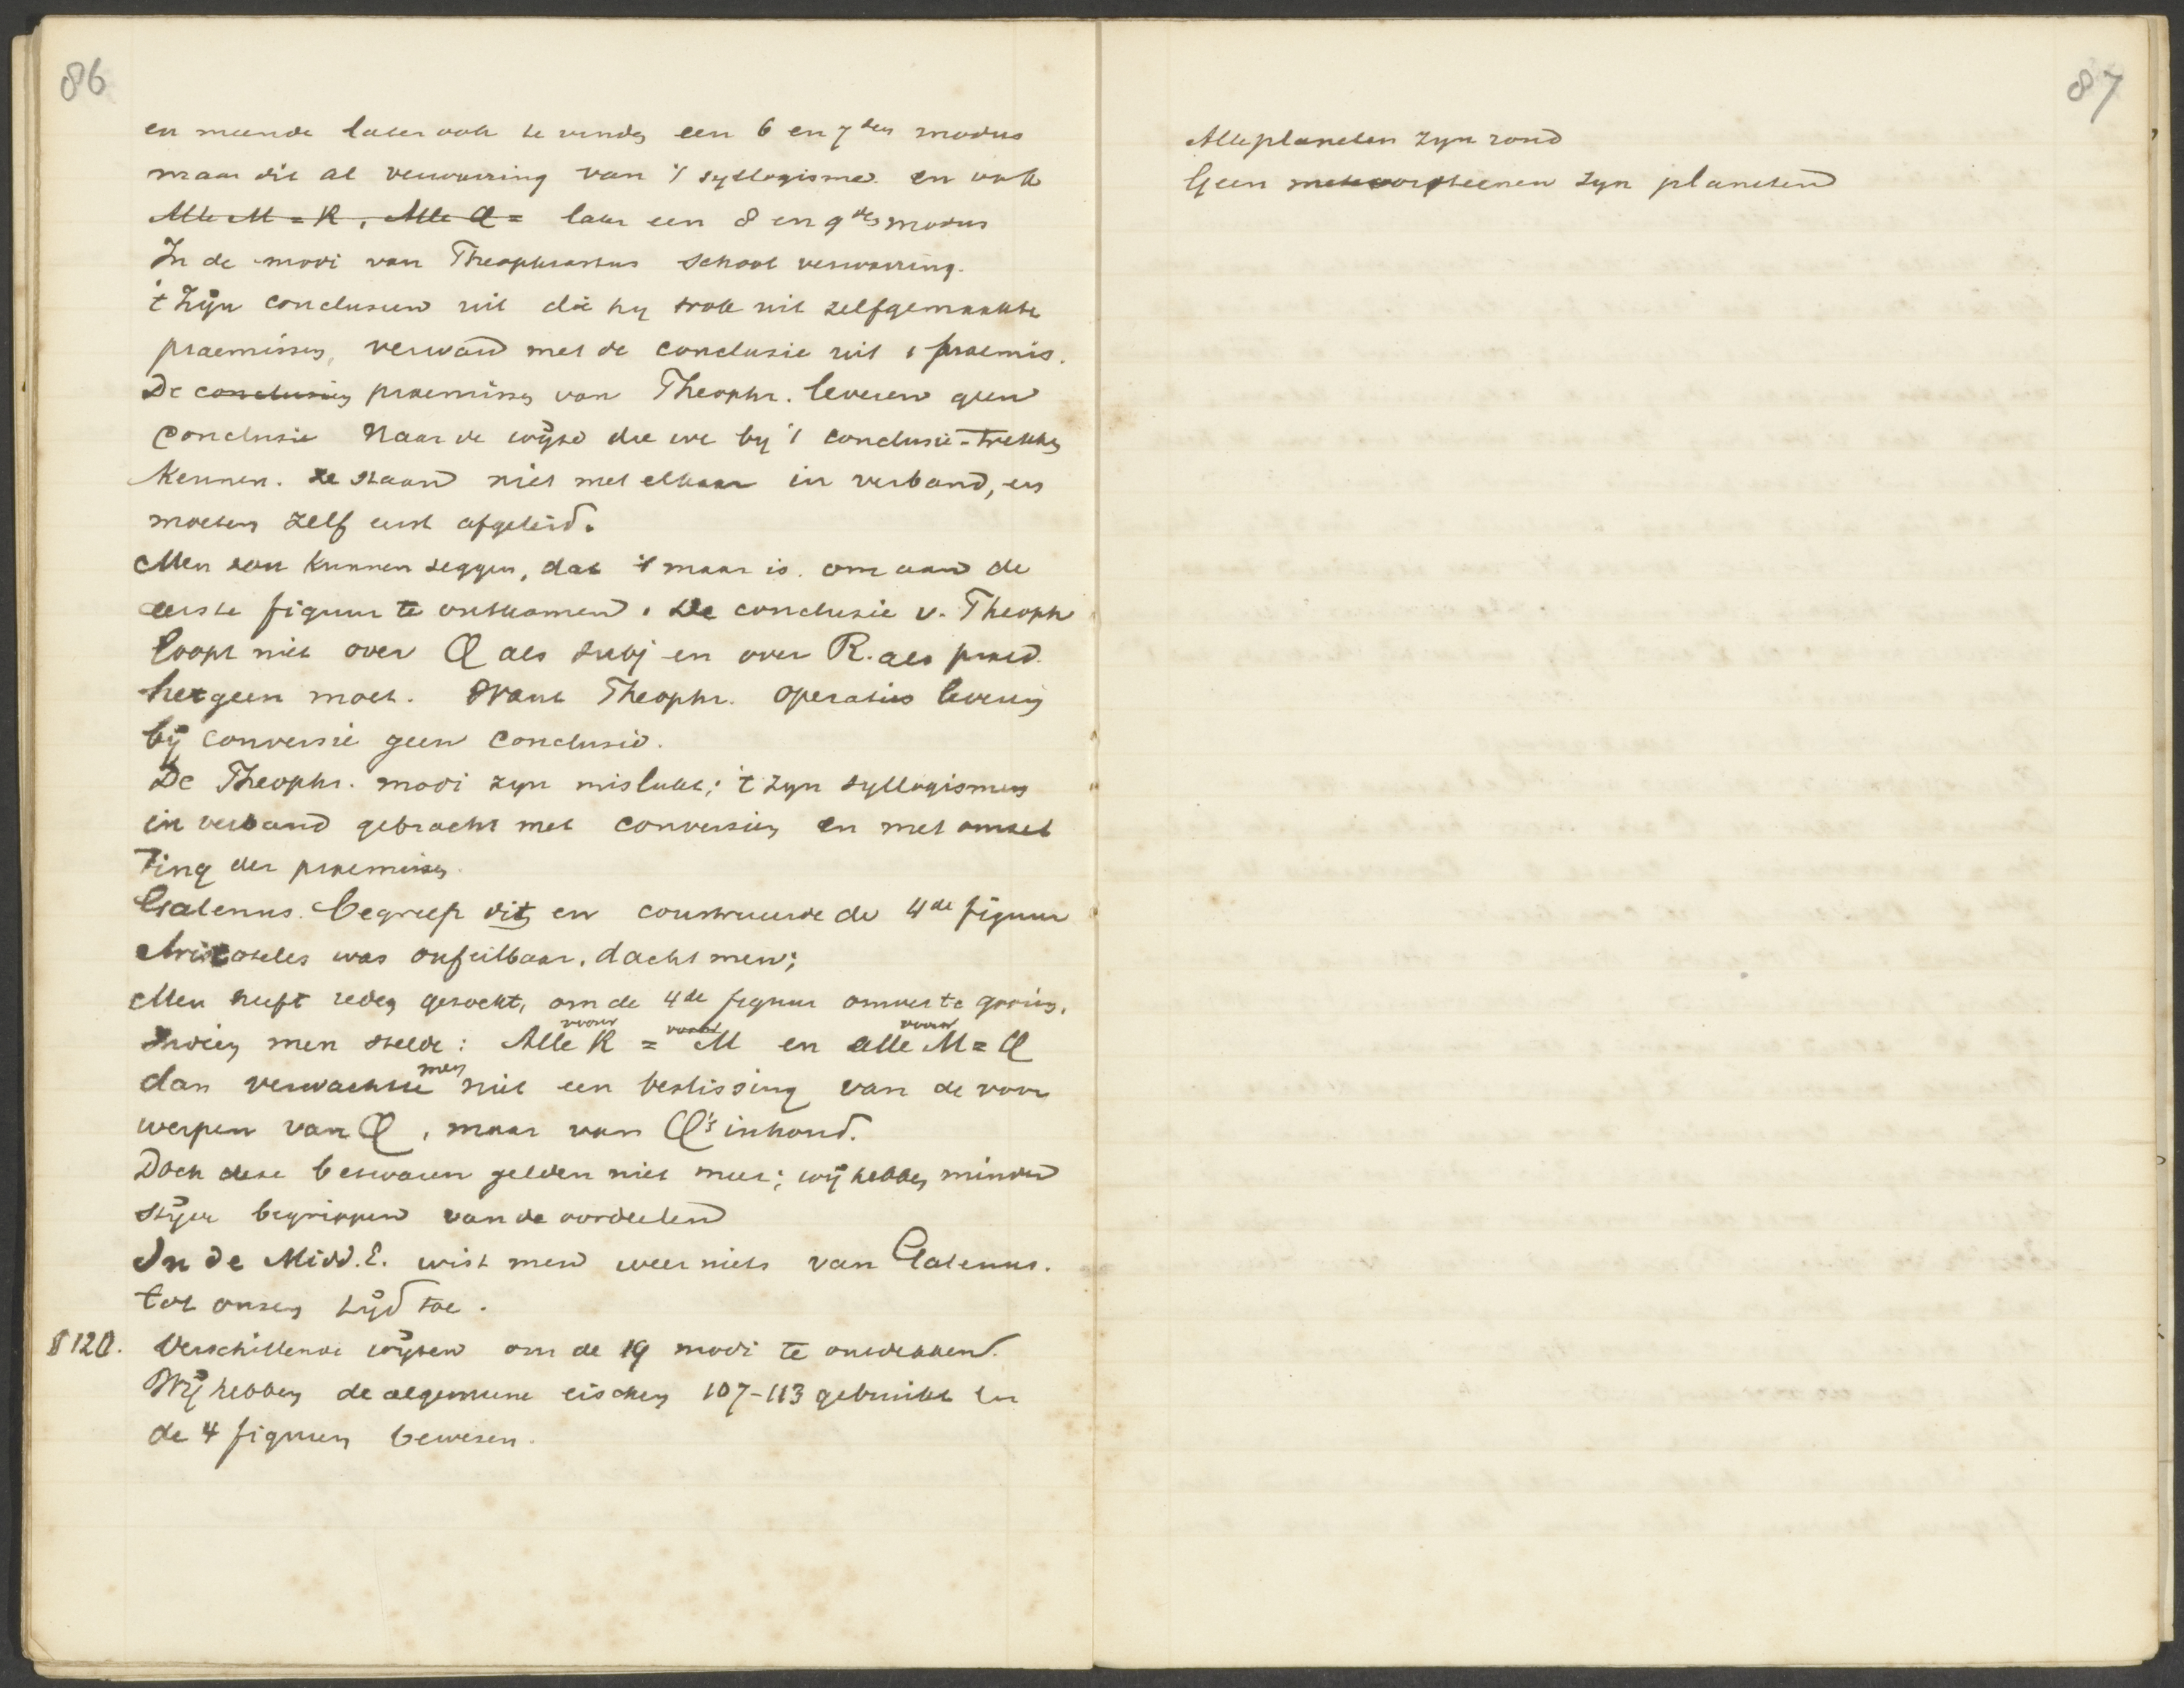 86
en meende later ook te vinden een 6 en 7den modus
maar dit al verwarring van 't syllogisme en ook
Alle M = R, Alle Q = later een 8 en 9den modus
In de modi van Theophrastus school verwarring.
't Zijn conclusien uit die hy trok uit zelfgemaakte
praemissen, verward met de conclusie uit 1 praemis.
De conclusies praemissen van Theophr. leveren geen
conclusie Naar de wijze die we by 't conclusie-trekken
kennen. ze staan niet met elkaar in verband, en
moeten zelf eerst afgeleid.
Men zou kunnen zeggen, dat 't maar is om aan de
eerste figuur te ontkomen. De conclusie v. Theoph
loopt niet over Q als subj en over R. als praed.
hetgeen moet. Want Theophr. operaties leveren
bij conversie geen conclusie.
De Theophr. modi zyn mislukt; 't zyn syllogismen
in verband gebracht met conversies en met omzet
ting der praemissen.
Galenus begreep dit en construeerde de 4de figuur
Aristoteles was onfeilbaar, dacht men;
Men heeft reden gezocht, om de 4de figuur omver te gooien.
Indien men stelde: Alle voorw R = voorw M en alle voorw M = Q
dan verwachtte men niet een beslissing van de voor
werpen van Q, maar van Q's inhoud.
Doch deze bezwaren gelden niet meer; wij hebben minder
stijve begrippen van de oordeelen
In de Midd. E. wist men weer niets van Galenus.
tot onzen tijd toe.
§ 120. Verschillende wijzen om de 19 modi te ontdekken.
Wij hebben de algemeene eischen 107-113 gebruikt en
de 4 figuren bewezen.
87
Alle planeten zyn rond
Geen meteoorsteenen zyn planeten